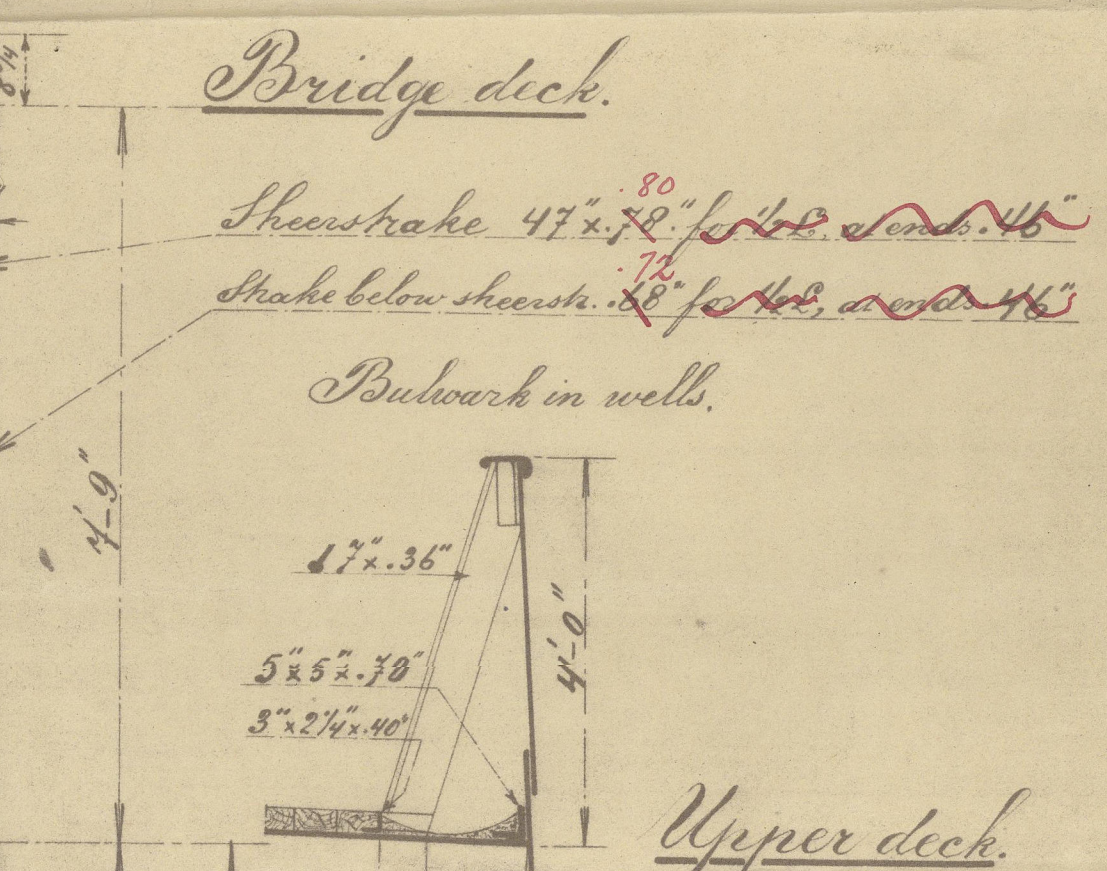 Bridge deck.
80
Sheerstrake 47" x .78" for ½ L, at ends .46"
.72
Strake below sheerstr. .68" for ½ L, at ends .46"
Bulwark in wells.
7'-9"
7" x .36"
4'-0"
5" x 5" x .70"
3" x 2¼" x .40"
Upper deck.